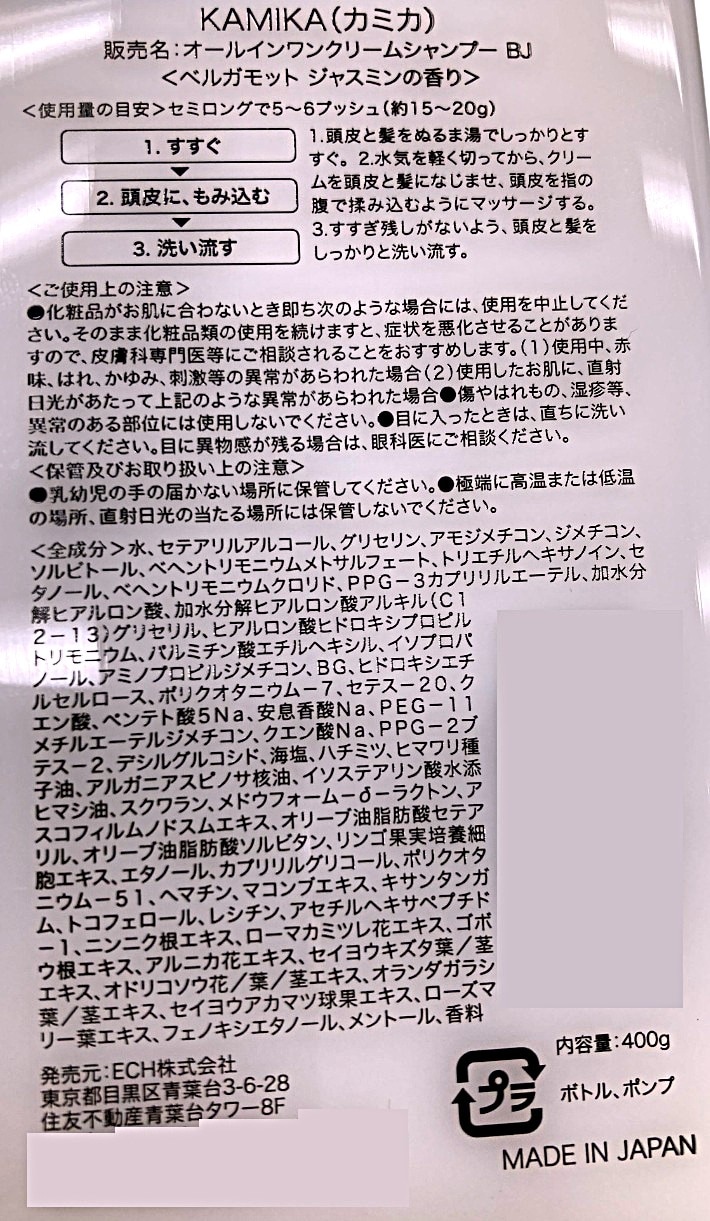 KAMIKA(カミカ)
販売名:オールインワンクリームシャンプー BJ
<ベルガモット ジャスミンの香り>
<使用量の目安>セミロングで5〜6プッシュ(約15〜20g)
1. すすぐ
2. 頭皮に、もみ込む
3. 洗い流す
1.頭皮と髪をぬるま湯でしっかりとす
すぐ。2.水気を軽く切ってから、クリー
ムを頭皮と髪になじませ、頭皮を指の
腹で揉み込むようにマッサージする。
3.すすぎ残しがないよう、頭皮と髪を
しっかりと洗い流す。
<ご使用上の注意>
●化粧品がお肌に合わないとき即ち次のような場合には、使用を中止してくだ
さい。そのまま化粧品類の使用を続けますと、症状を悪化させることがありま
すので、皮膚科専門医等にご相談されることをおすすめします。(1)使用中、赤
味、はれ、かゆみ、刺激等の異常があらわれた場合(2)使用したお肌に、直射
日光があたって上記のような異常があらわれた場合●傷やはれもの、湿疹等、
異常のある部位には使用しないでください。●目に入ったときは、直ちに洗い
流してください。目に異物感が残る場合は、眼科医にご相談ください。
<保管及びお取り扱い上の注意>
●乳幼児の手の届かない場所に保管してください。●極端に高温または低温
の場所、直射日光の当たる場所には保管しないでください。
<全成分>水、セテアリルアルコール、グリセリン、アモジメチコン、ジメチコン、
ソルビトール、ベヘントリモニウムメトサルフェート、トリエチルヘキサノイン、セ
タノール、ベヘントリモニウムクロリド、PPG-3カプリリルエーテル、加水分
解ヒアルロン酸、加水分解ヒアルロン酸アルキル(C1
2-13)グリセリル、ヒアルロン酸ヒドロキシプロピル
トリモニウム、パルミチン酸エチルヘキシル、イソプロパ
ノール、アミノプロピルジメチコン、BG、ヒドロキシエチ
ルセルロース、ポリクオタニウム-7、セテス-20、ク
エン酸、ペンテト酸5Na、安息香酸Na、PEG-11
メチルエーテルジメチコン、クエン酸Na、PPG-2ブ
テス-2、デシルグルコシド、海塩、ハチミツ、ヒマワリ種
子油、アルガニアスピノサ核油、イソステアリン酸水添
ヒマシ油、スクワラン、メドウフォーム-δ-ラクトン、ア
スコフィルムノドスムエキス、オリーブ油脂肪酸セテア
リル、オリーブ油脂肪酸ソルビタン、リンゴ果実培養細
胞エキス、エタノール、カプリリルグリコール、ポリクオタ
ニウム-51、ヘマチン、マコンブエキス、キサンタンガ
ム、トコフェロール、レシチン、アセチルヘキサペプチド
-1、ニンニク根エキス、ローマカミツレ花エキス、ゴボ
ウ根エキス、アルニカ花エキス、セイヨウキズタ葉/茎
エキス、オドリコソウ花/葉/茎エキス、オランダガラシ
葉/茎エキス、セイヨウアカマツ球果エキス、ローズマ
リー葉エキス、フェノキシエタノール、メントール、香料
発売元:ECH株式会社
東京都目黒区青葉台3-6-28
住友不動産青葉台タワー8F
プラ
内容量:400g
ボトル、ポンプ
MADE IN JAPAN